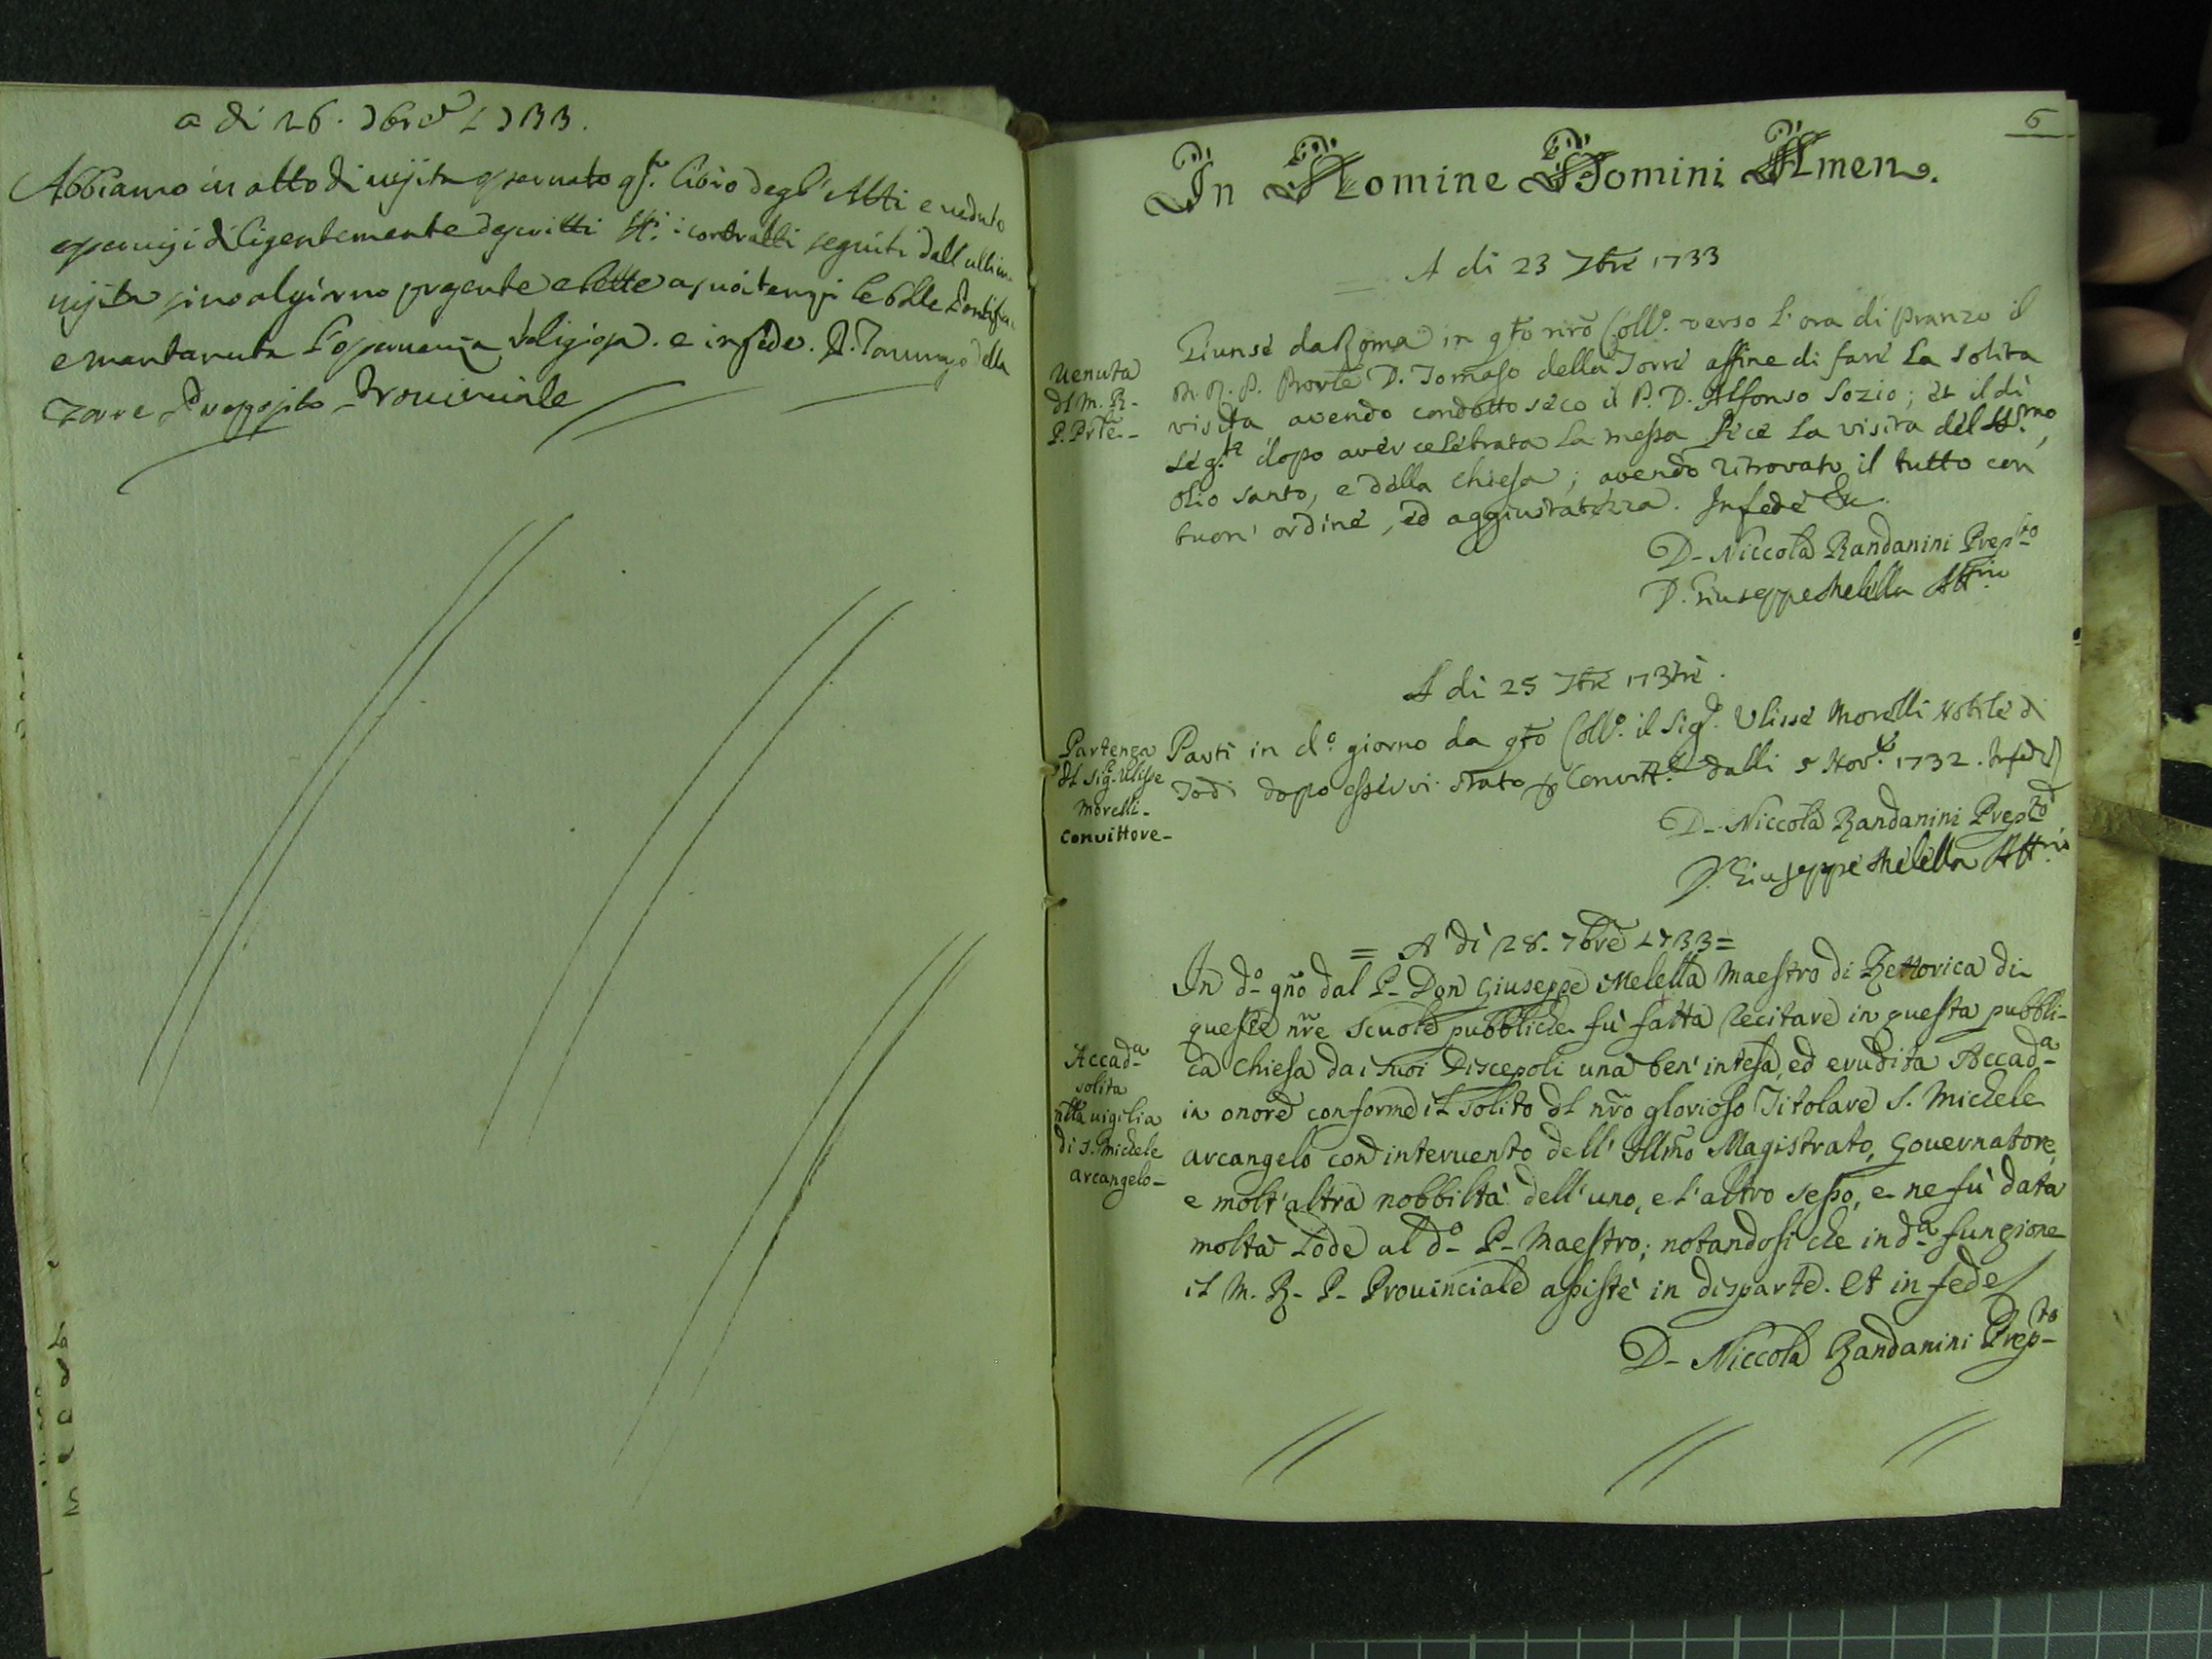 a di 26. 7bre 1733.
Abbiamo in atto di visita osservato qsto. libro degl'Atti e veduto
esservisi diligentemente descritti tti. i contratti seguiti dall'ultima
visita sino al giorno presente e lette a suoi tempi le bolle Pontifi.
e mantenuta l'osservanza religiosa. e in fede. D. Tommaso della
Torre Preposito Provinciale
6
In Nomine Domini Amen.
A di 23 7bre 1733
Venuta
dl M. R.
P. Prle.
Giunse da Roma in qsto nro Coll.o verso l'ora di pranzo il
M. R. P. Provle D. Tomaso della Torre affine di fare la solita
visita avendo condotto seco il P. D. Alfonso Sozio; et il dì
seg.te dopo aver celebrata la messa fece la visita del SS.mo,
olio santo, e della chiesa; avendo ritrovato il tutto con
buon' ordine, ed aggiustatezza. In fede &c.
D. Niccola Randanini Prep.to
D. Giuseppe Melella Att.rio
A di 25 7bre 173tre.
Partenza
dl Sig. Ulisse
Morelli.
Convittore
Partì in d.o giorno da qsto Coll.o il Sig.r Ulisse Morelli Nobile di
Todi dopo esservi stato p Convitt.e dalli 5 Nov.e 1732. In fede
D. Niccola Randanini Prep.to
D. Giuseppe Melella Att.rio
= A dì 28. 7bre 1733 =
Accad.a
solita
nella vigilia
di S. Michele
arcangelo
In d.o gño dal P. Don Giuseppe Melella Maestro di Rettorica di
queste nre Scuole pubbliche fù fatta recitare in questa pubbli-
ca chiesa da i suoi Discepoli una ben' intesa, ed erudita Accad.a
in onore conforme il solito dl nro glorioso Titolare S. Michele
arcangelo con intervento dell' Illmo Magistrato, Governatore,
e molt'altra nobbiltà dell'uno, e l'altro sesso, e ne fù data
molta Lode al d.o P. Maestro; notandosi che in d.a funzione
il M. R. P. Provinciale assistè in disparte. Et in fede
D. Niccola Randanini Prep.to